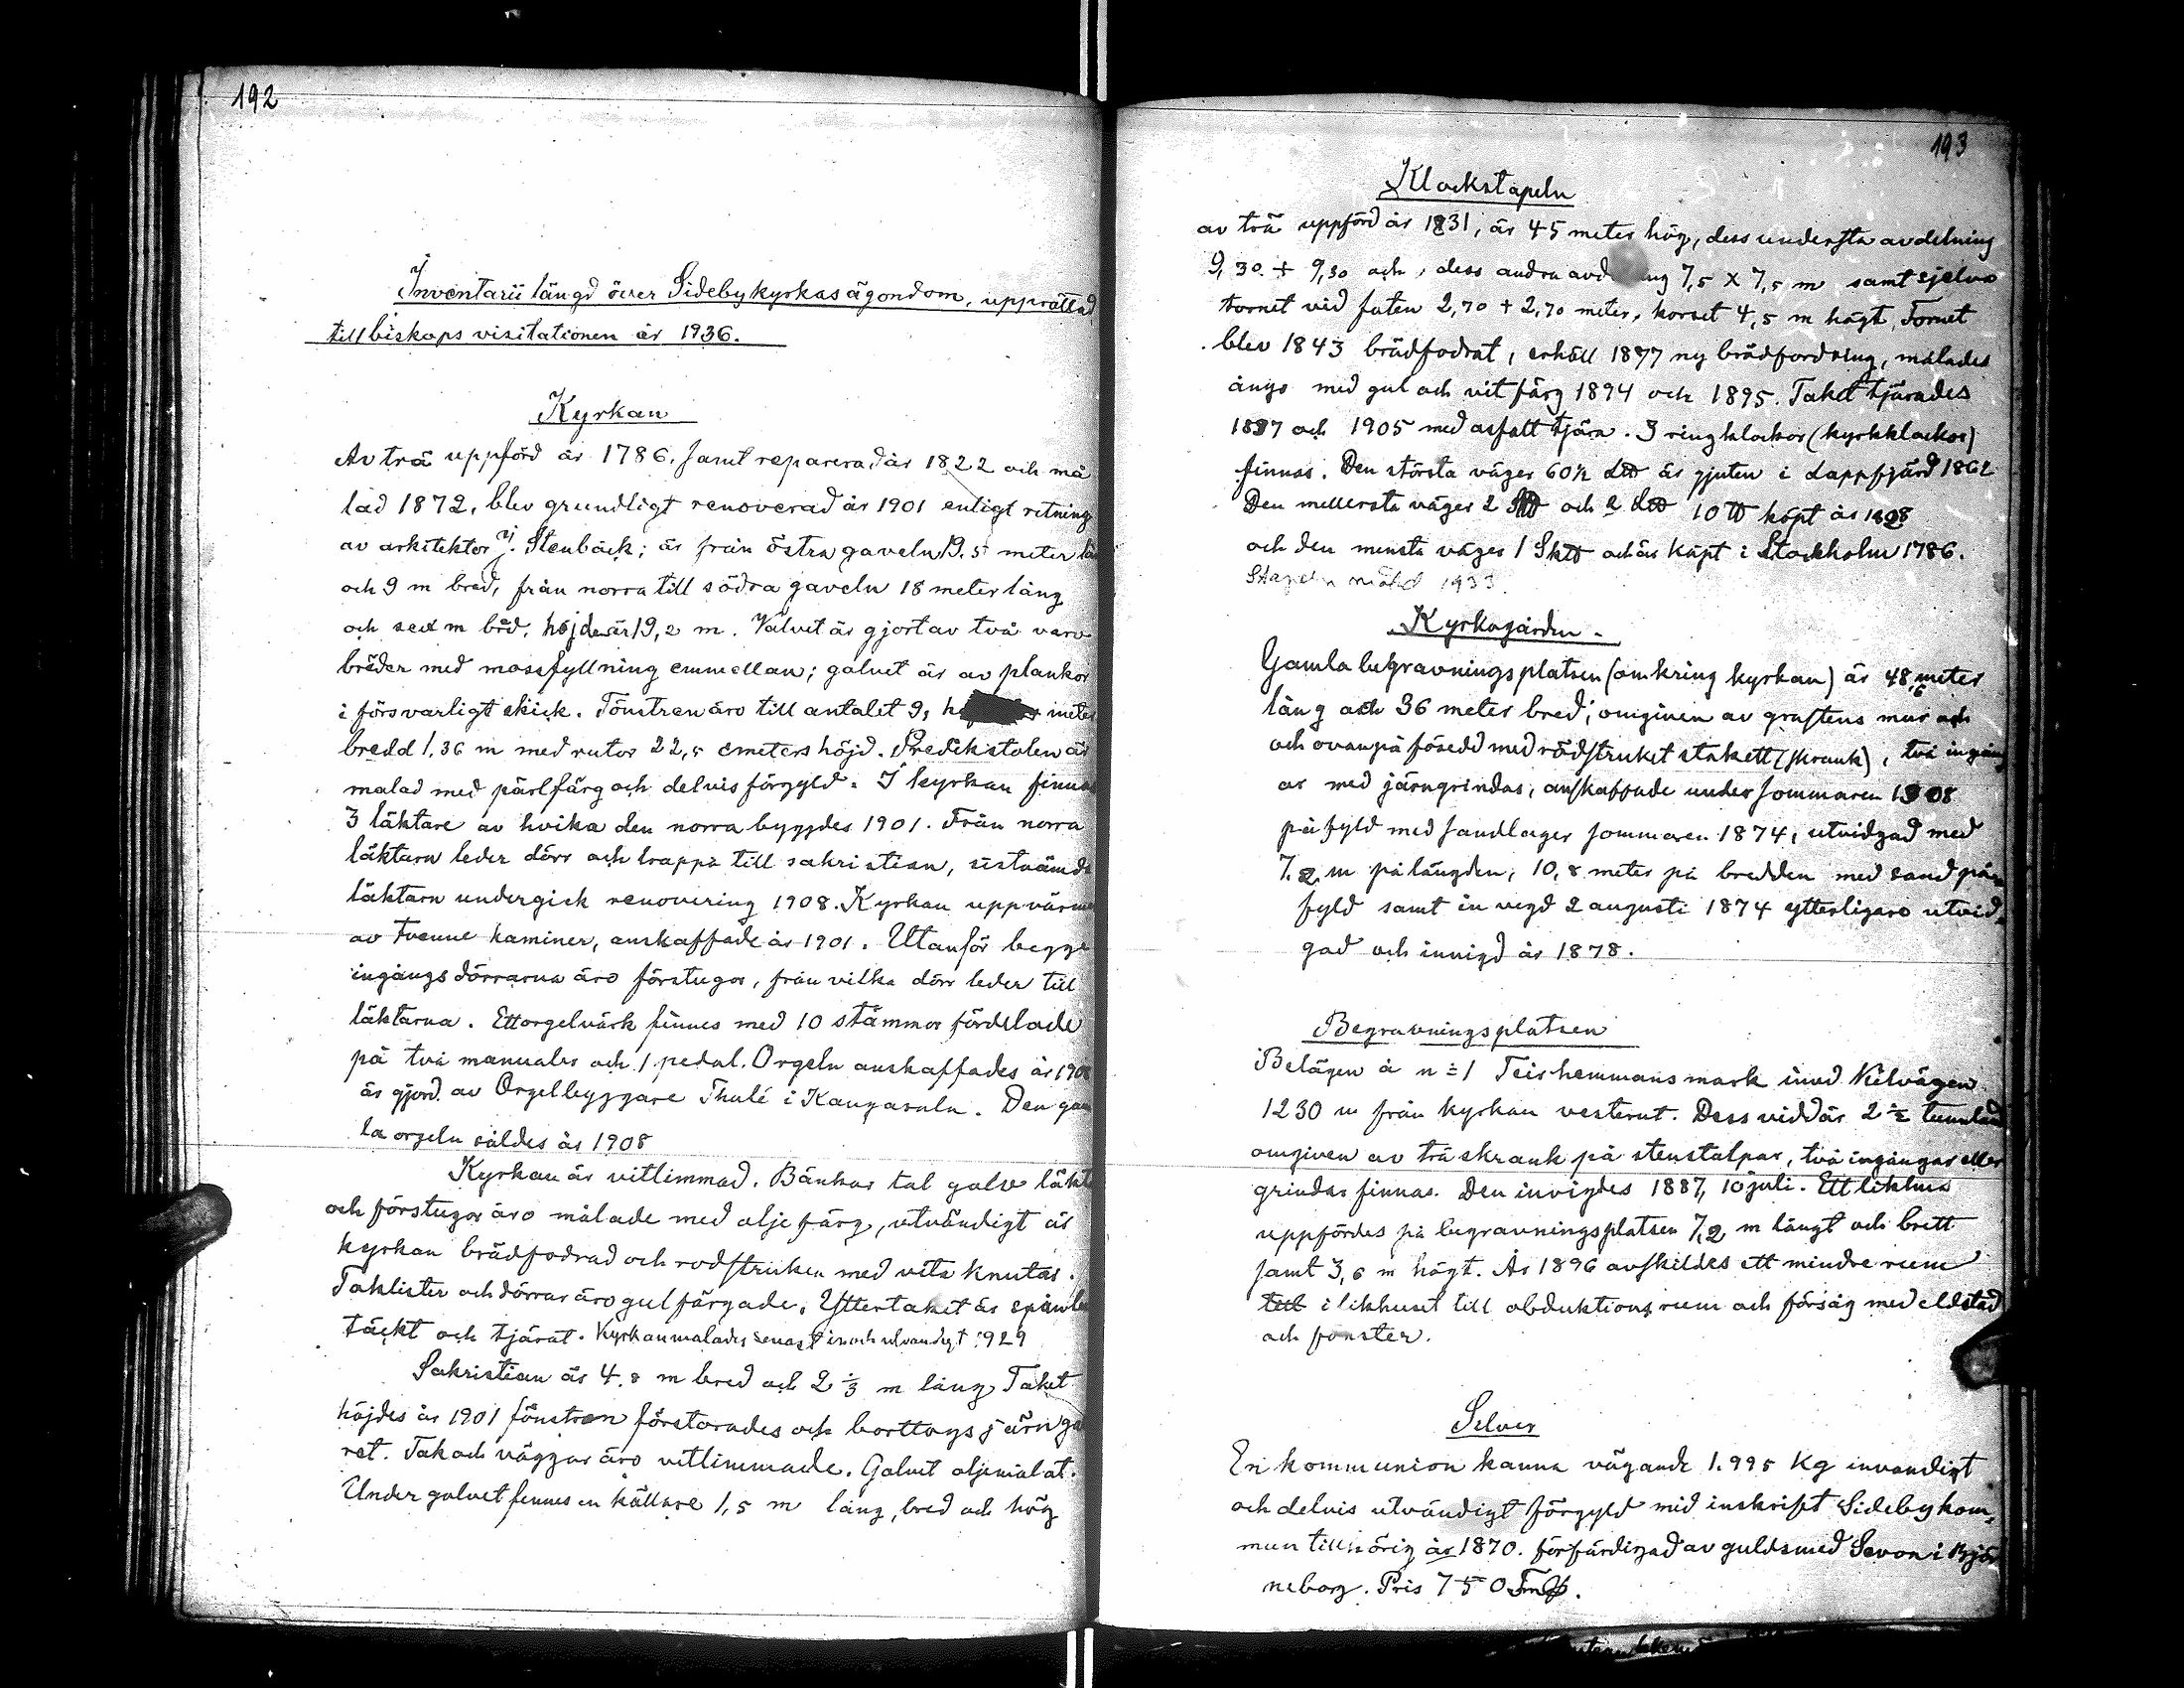 192
Inventarii längd över Sideby kyrkas ägondom, upprättad
till biskops visitationen år 1936.
Kyrkan
Av trä uppförd år 1786. Samt reparerad år 1822 och må
lad 1872, blev grundligt renoverad år 1901 enligt ritning
av arkitektor J. Stenbäck; är från östra gaveln 19.5 meter
och 9 m bred, från norra till södra gaveln 18 meter lång
och sex m bred, höjden är 19,2 m. Valvet är gjort av två varv
bräder med mossfyllning emmellan; golvet är av plankor
i försvarligt skick. Fönstren äro till antalet 9, meter
bredd 1.36 m med rutor 22,5 cmeters höjd. Predikstolen är
malad med pärlfärg och delvis förgyld. I kyrkan finnas
3 läktare av hvika den norra byggdes 1901. Från norra
läktarn leder dörr och trappa till sakristian, sistnämda
läktarn undergick renovering 1908. Kyrkan uppvärmes
av tvenne kaminer, anskaffade år 1901. Utanför begge
ingångs dörrarna äro förstugor, från vilka dörr leder till
läktarna. Ett orgelvärk finnes med 10 stämmor fördelade
på två manualer och 1 pedal. Orgeln anskaffades år 1908
är gjord av Orgelbyggare Thulé i Kangasala. Den gam
la orgeln såldes år 1908
Kyrkan är vitlimmad. Bänkar tal golv läkt
och förstugor äro målade med olje färg, utvändigt är
kyrkan brädfodrad och rodstruken med vita knutar.
Taklister och dörrar äro gulfärgade. Yttertaket är spån be
täckt och tjärat. Kyrkan malades senast in och utvandigt 1929
Sakristian är 4.8 m bred och 2 2/3 m lång Taket
höjdes år 1901 fönstren förstorades och borttogs järn ga
ret. Tak och väggar äro vitlimmade. Golvet oljemålat.
Under golvet finnes en källare 1,5 m lång, bred och hög
193
Klockstapeln
av trä uppförd år 1831, är 45 meter hög, dess understa avdelning
9,30 + 9,30 och dess andra avdelning 7,5 X 7,5 m samt sjelva
tornet vid foten 2,70 + 2,70 meter, korset 4,5 m högt, Tornet
blev 1843 brädfodrat, erhöll 1877 ny brädfordring, målades
ånyo med gul och vit färg 1894 och 1895. Taket tjärades
1887 och 1905 med asfalt tjära. 3 ringklockor (kyrkklockor)
finnas. Den största väger 60½ L℔ är gjuten i Lappfjärd 1862
Den mellersta väger 2 Sk℔ och 2 L℔ 10 ℔ köpt år 1828
och den minsta väger 1 Sk℔ och är köpt i Stockholm 1786.
Stapeln måld 1933.
Kyrkogården.
Gamla begravningsplatsen (omkring kyrkan) är 48,6 meter
lång och 36 meter bred; omgiven av gråstens mur och
och ovanpå försedd med rödstruket stakett (skrank), två ingång
ar med järngrindar, anskaffade under sommaren 1908
påfyld med sandlager sommaren 1874, utvidgad med
7.2 m på längden, 10,8 meter på bredden med sand på
fyld samt in vigd 2 augusti 1874 ytterligare utvid
gad och invigd år 1878.
Begravningsplatsen
Belägen å n:1 Teirhemmans mark invid Kilvägen
1230 m från kyrkan vesterut. Dess vidd är 2 ½ tunnland
omgiven av trä skrank på stenstålpar, två ingångar eller
grindar finnas. Den invigdes 1887, 10 juli. Ett likhus
uppfördes på begravningsplatsen 7,2 m långt och brett
samt 3,6 m högt. År 1896 avskildes ett mindre rum
till i likhuset till obduktions rum och försåg med eldstad
och fonster.
Selver
En kommunion kanna vägande 1.995 Kg invandigt
och delvis utvändigt förgyld mid inskrift Sideby kom,
mun tillhörig år 1870. förfärdigad av guldsmed Sevon i Björ
neborg. Pris 750 Fmk.